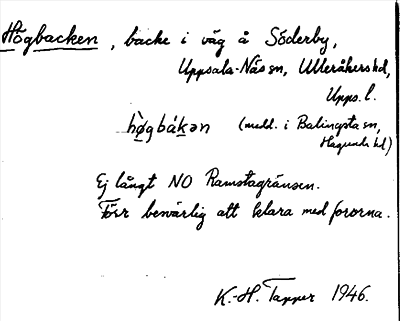 Högbacken, backe i väg å Söderby,
Uppsala-Näs sn, Ulleråkers hd,
Upps. l.
hø̀gbákən (medd. i Balingsta sn,
Hagunda hd)
Ej långt NO Ramstagränsen.
Förr besvärlig att klara med fororna.
K.-H. Tapper 1946.